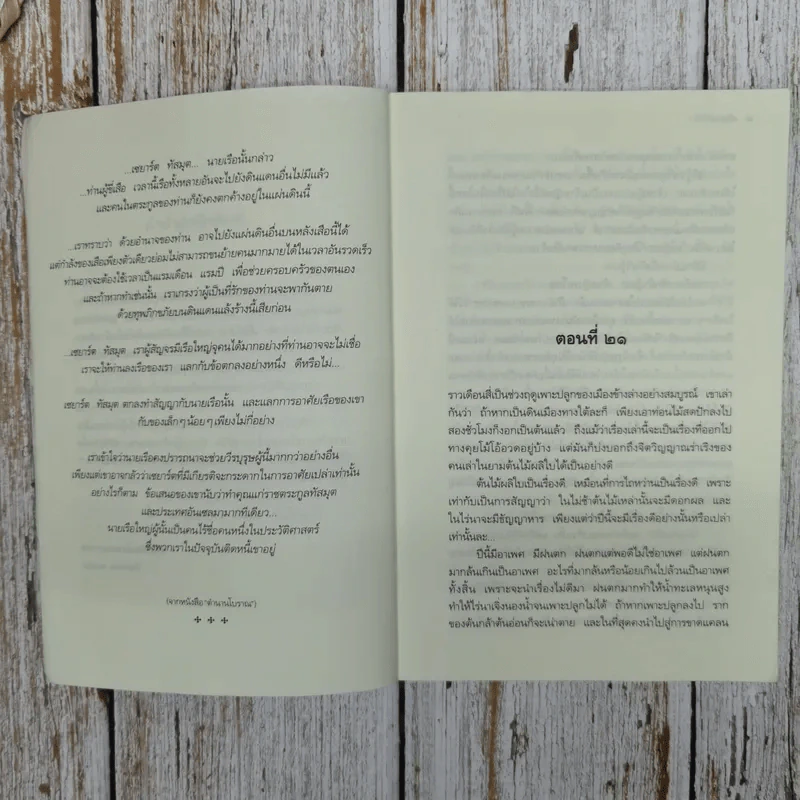 ...เซยาร์ด ทัสมุต... นายเรือนั้นกล่าว
...ท่านผู้ขี่เสือ เวลานี้เรือทั้งหลายอันจะไปยังดินแดนอื่นไม่มีแล้ว
และคนในตระกูลของท่านก็ยังคงตกค้างอยู่ในแผ่นดินนี้
...เราทราบว่า ด้วยอำนาจของท่าน อาจไปยังแผ่นดินอื่นบนหลังเสือนี้ได้
แต่กำลังของเสือเพียงตัวเดียวย่อมไม่สามารถขนย้ายคนมากมายได้ในเวลาอันรวดเร็ว
ท่านอาจจะต้องใช้เวลาเป็นแรมเดือน แรมปี เพื่อช่วยครอบครัวของตนเอง
และถ้าหากทำเช่นนั้น เราเกรงว่าผู้เป็นที่รักของท่านจะพากันตาย
ด้วยทุพภิกขภัยบนดินแดนแล้งร้างนี้เสียก่อน
...เซยาร์ด ทัสมุต เราผู้สัญจรมีเรือใหญ่จุคนได้มากอย่างที่ท่านอาจจะไม่เชื่อ
เราจะให้ท่านลงเรือของเรา แลกกับข้อตกลงอย่างหนึ่ง ดีหรือไม่...
เซยาร์ด ทัสมุต ตกลงทำสัญญากับนายเรือนั้น และแลกการอาศัยเรือของเขา
กับของเล็กๆน้อยๆเพียงไม่กี่อย่าง
เราเข้าใจว่านายเรือคงปรารถนาจะช่วยวีรบุรุษผู้นี้มากกว่าอย่างอื่น
เพียงแต่เขาอาจกลัวว่าเซยาร์ดที่มีเกียรติจะกระดากในการอาศัยเปล่าเท่านั้น
อย่างไรก็ตาม ข้อเสนอของเขานับว่าทำคุณแก่ราชตระกูลทัสมุต
และประเทศอันเซลมามากทีเดียว...
นายเรือใหญ่ผู้นั้นเป็นคนไร้ชื่อคนหนึ่งในประวัติศาสตร์
ซึ่งพวกเราในปัจจุบันติดหนี้เขาอยู่
(จากหนังสือ"ตำนานโบราณ")
ตอนที่ ๒๑
ราวเดือนสี่เป็นช่วงฤดูเพาะปลูกของเมืองข้างล่างอย่างสมบูรณ์ เขาเล่า
กันว่า ถ้าหากเป็นดินเมืองทางใต้ละก็ เพียงเอาท่อนไม้สดปักลงไป
สองชั่วโมงก็งอกเป็นต้นแล้ว ถึงแม้ว่าเรื่องเล่านี้จะเป็นเรื่องที่ออกไป
ทางคุยโม้โอ้อวดอยู่บ้าง แต่มันก็บ่งบอกถึงจิตวิญญาณร่าเริงของ
คนเล่าในยามต้นไม้ผลิใบได้เป็นอย่างดี
ต้นไม้ผลิใบเป็นเรื่องดี เหมือนที่การไถหว่านเป็นเรื่องดี เพราะ
เท่ากับเป็นการสัญญาว่า ในไม่ช้าต้นไม้เหล่านั้นจะมีดอกผล และ
ในไร่นาจะมีธัญญาหาร เพียงแต่ว่าปีนี้จะมีเรื่องดีอย่างนั้นหรือเปล่า
เท่านั้นละ...
ปีนี้มีอาเพศ มีฝนตก ฝนตกแต่พอดีไม่ใช่อาเพศ แต่ฝนตก
มากล้นเกินเป็นอาเพศ อะไรที่มากล้นหรือน้อยเกินไปล้วนเป็นอาเพศ
ทั้งสิ้น เพราะจะนำเรื่องไม่ดีมา ฝนตกมากทำให้น้ำทะเลหนุนสูง
ทำให้ไร่นาเจิ่งนองน้ำจนเพาะปลูกไม่ได้ ถ้าหากเพาะปลูกลงไป ราก
ของต้นกล้าต้นอ่อนก็จะเน่าตาย และในที่สุดคงนำไปสู่การขาดแคลน